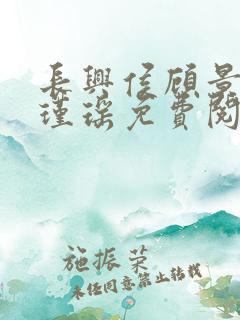 長興侯顾景
瑾瑤免費閱
施振荣
未任同意禁止转载